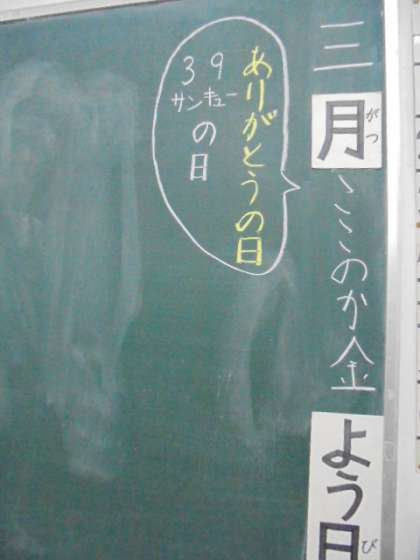 三月ここのか金よう日
がつ
び
ありがとうの日
39
サンキュー
の日